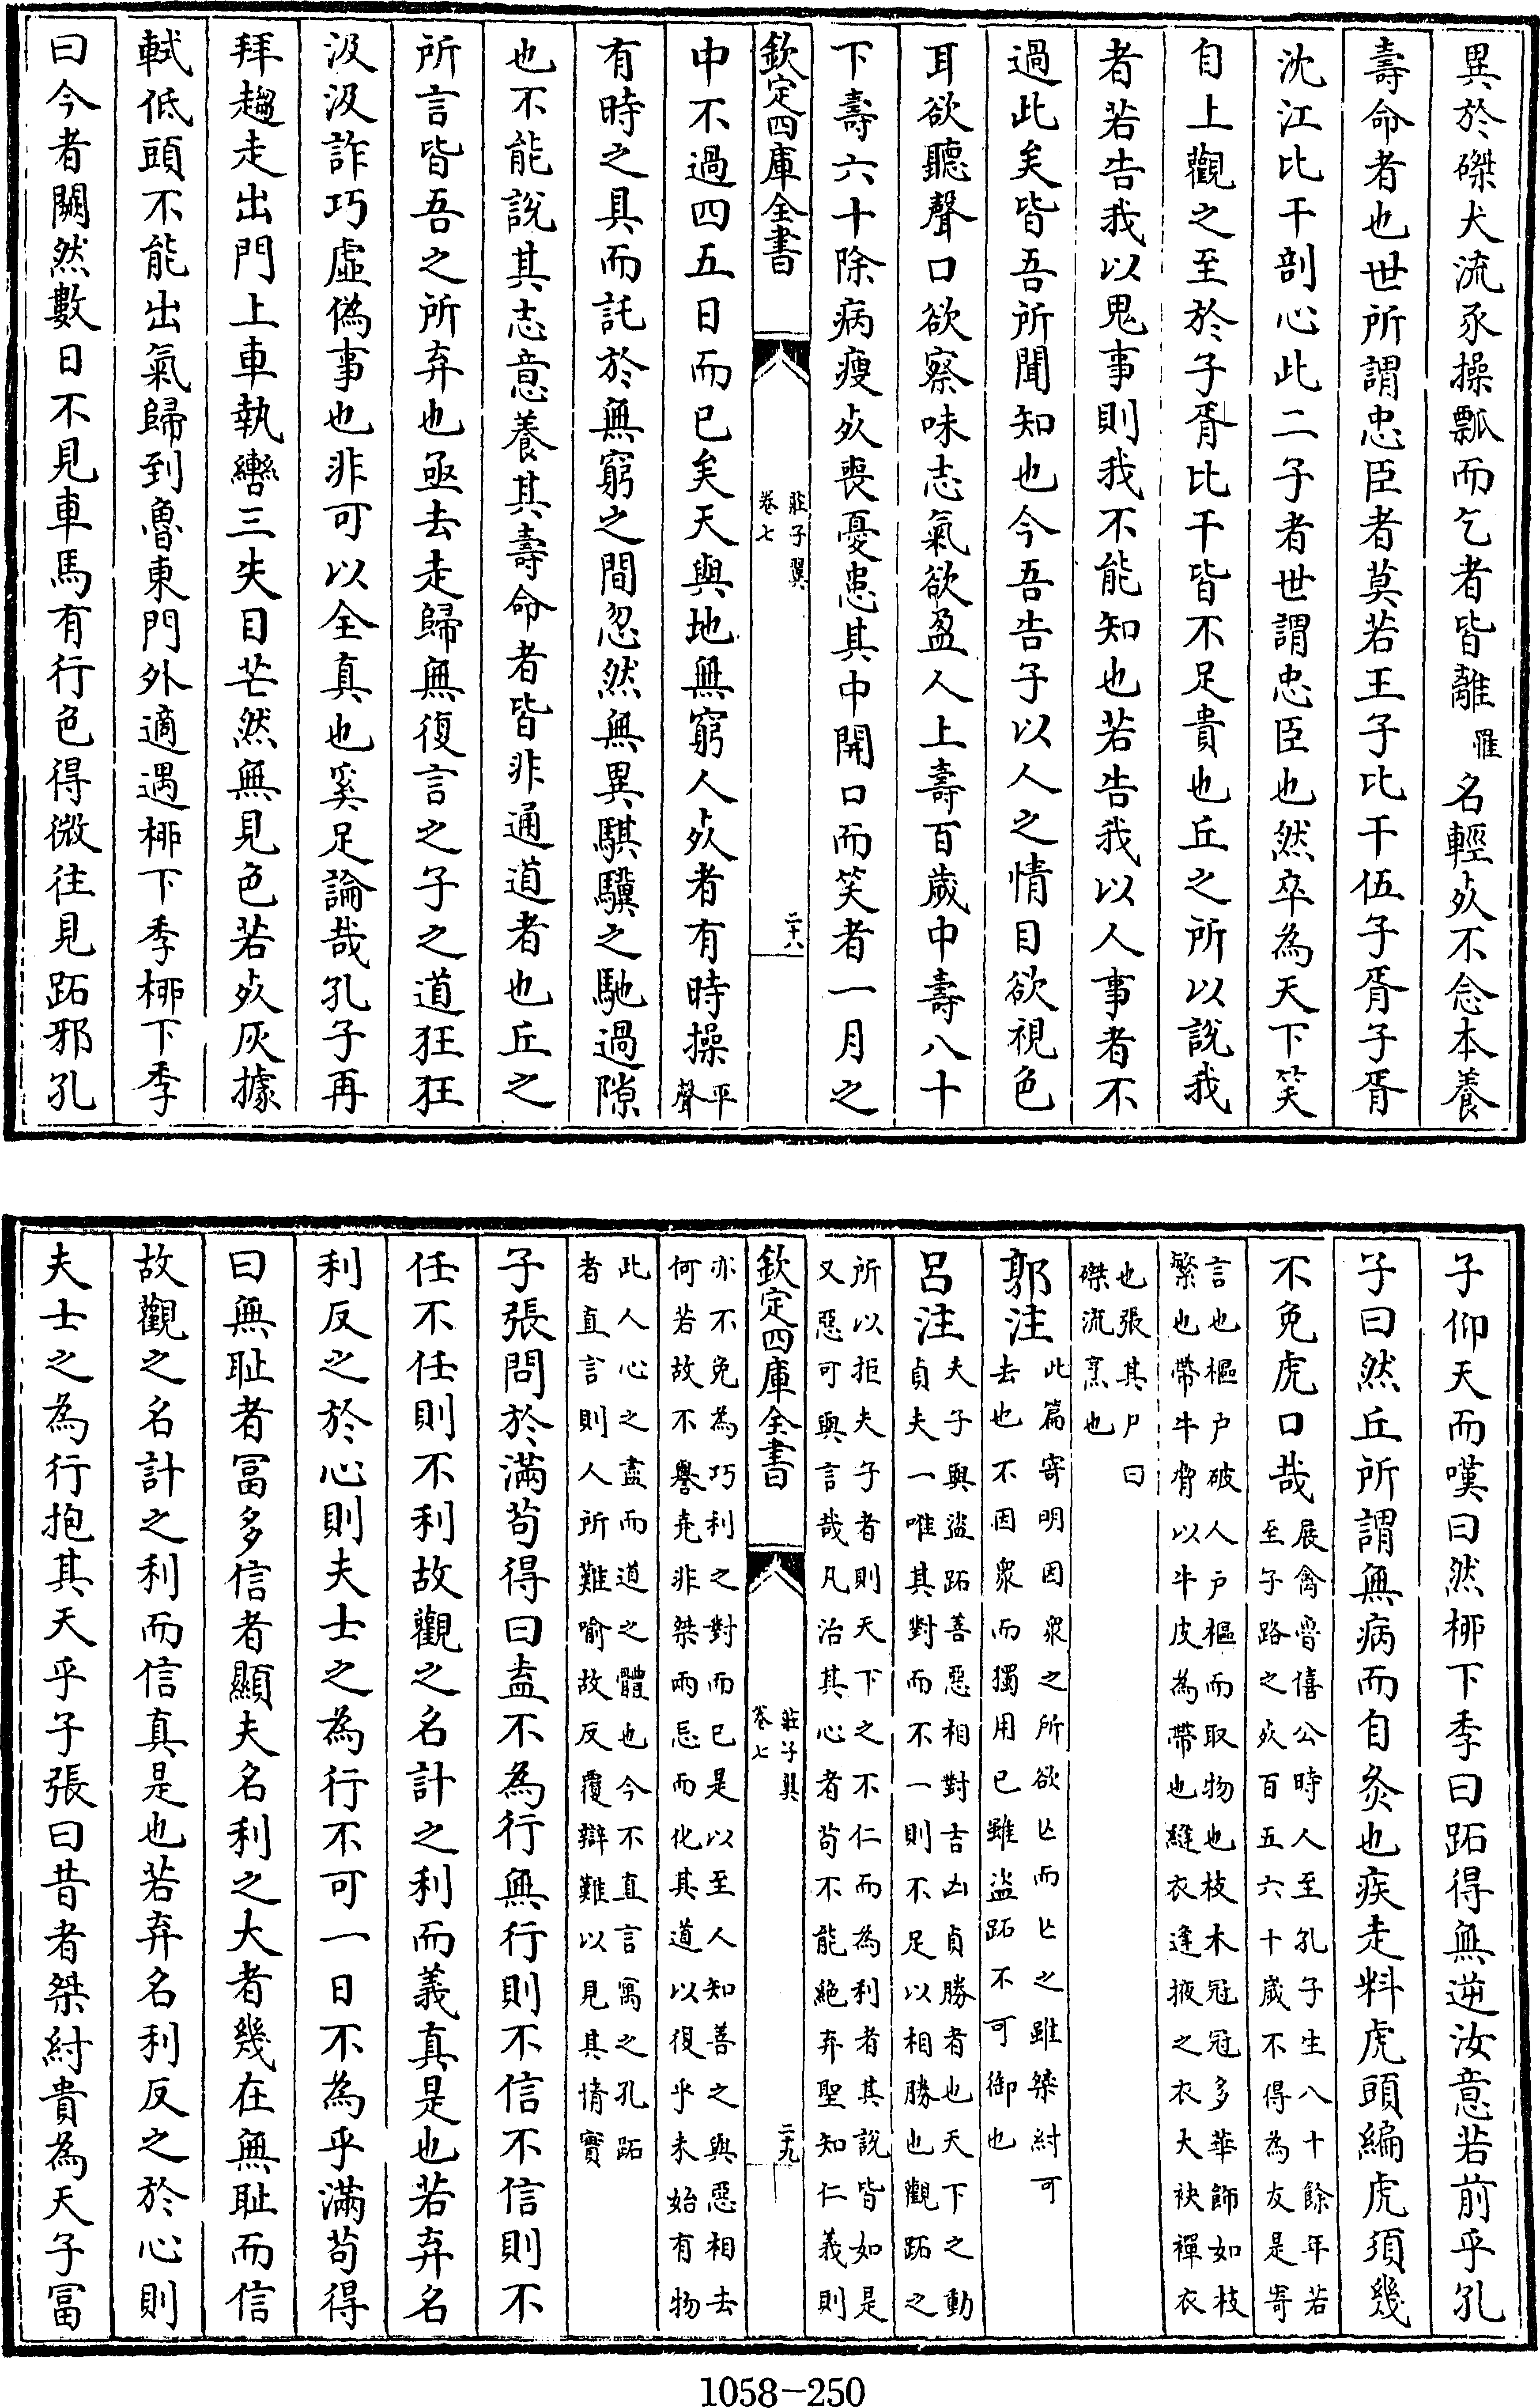 異於磔犬流豕操瓢而乞者皆離罹名輕死不念本養
壽命者也世所謂忠臣者莫若王子比干伍子胥子胥
沈江比干剖心此二子者世謂忠臣也然卒為天下笑
自上觀之至於子胥比干皆不足貴也丘之所以說我
者若告我以鬼事則我不能知也若告我以人事者不
過此矣皆吾所聞知也今吾告子以人之情目欲視色
耳欲聽聲口欲察味志氣欲盈人上壽百歲中壽八十
下壽六十除病瘦死喪憂患其中開口而笑者一月之
欽定四庫全書 莊子翼 卷七 二十八
中不過四五日而已矣天與地無窮人死者有時操平聲
有時之具而託於無窮之間忽然無異騏驥之馳過隙
也不能說其志意養其壽命者皆非通道者也丘之
所言皆吾之所弃也亟去走歸無復言之子之道狂狂
汲汲詐巧虛偽事也非可以全真也奚足論哉孔子再
拜趨走出門上車執轡三失目芒然無見色若死灰據
軾低頭不能出氣歸到魯東門外適遇桺下季桺下季
曰今者闕然數日不見車馬有行色得微往見跖邪孔
子仰天而嘆曰然桺下季曰跖得無逆汝意若前乎孔
子曰然丘所謂無病而自灸也疾走料虎頭編虎須幾
不免虎口哉展禽魯僖公時人至孔子生八十餘年若
至子路之死百五六十歲不得為友是寄
言也樞户破人户樞而取物也枝木冠冠多華飾如枝
繁也帶牛脅以牛皮為帶也縫衣逢掖之衣大袂襌衣
也張其尸曰
磔流烹也
郭注此篇寄明因衆之所欲亡而亡之雖桀紂可
去也不因衆而獨用已雖盜跖不可御也
呂注夫子與盜跖善惡相對吉凶貞勝者也天下之動
貞夫一唯其對而不一則不足以相勝也觀跖之
所以拒夫子者則天下之不仁而為利者其說皆如是
又惡可與言哉凡治其心者苟不能絶弃聖知仁義則
欽定四庫全書 莊子翼 卷七 二十九
亦不免為巧利之對而已是以至人知善之與惡相去
何若故不譽堯非桀兩忘而化其道以復乎未始有物
此人心之盡而道之體也今不直言寓之孔跖
者直言則人所難喻故反覆辯難以見其情實
子張問於滿苟得曰盍不為行無行則不信不信則不
任不任則不利故觀之名計之利而義真是也若弃名
利反之於心則夫士之為行不可一日不為乎滿苟得
曰無恥者冨多信者顯夫名利之大者幾在無恥而信
故觀之名計之利而信真是也若弃名利反之於心則
夫士之為行抱其天乎子張曰昔者桀紂貴為天子冨
1058-250